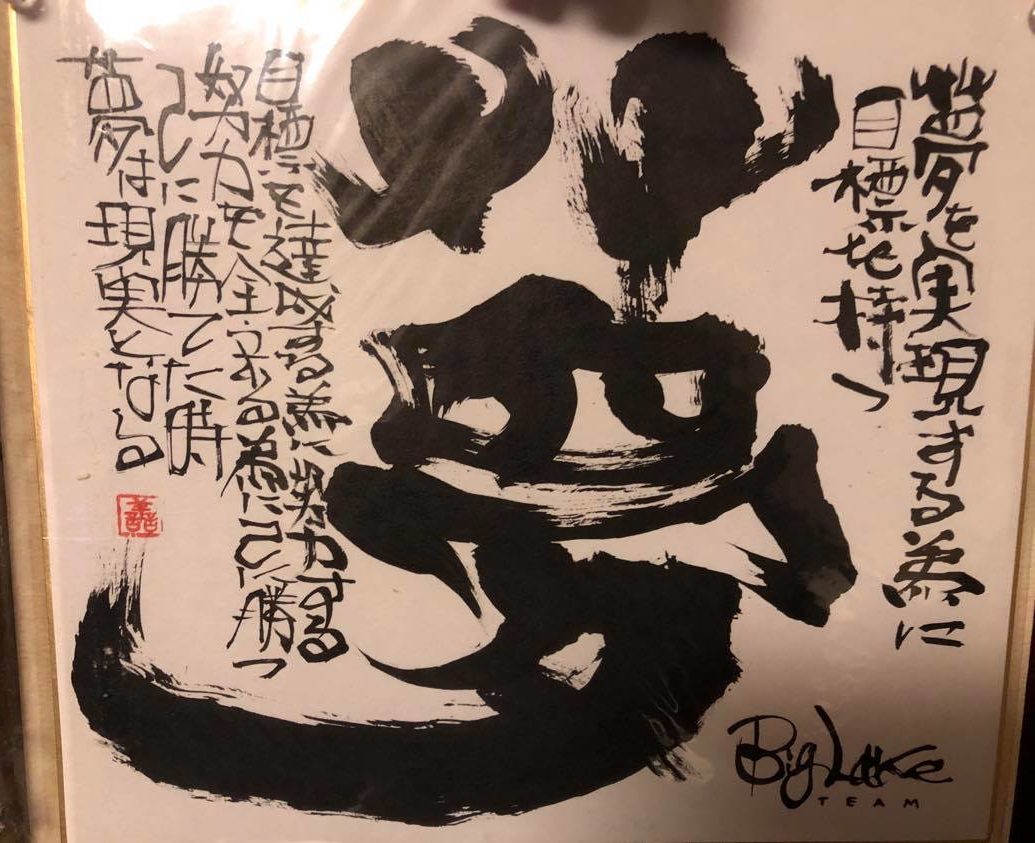 夢を実現する為に
目標を持つ
夢
目標を達成する為に努力する
努力を全うする為に己に勝つ
己に勝てた時
夢は現実となる
Big Lake
TEAM